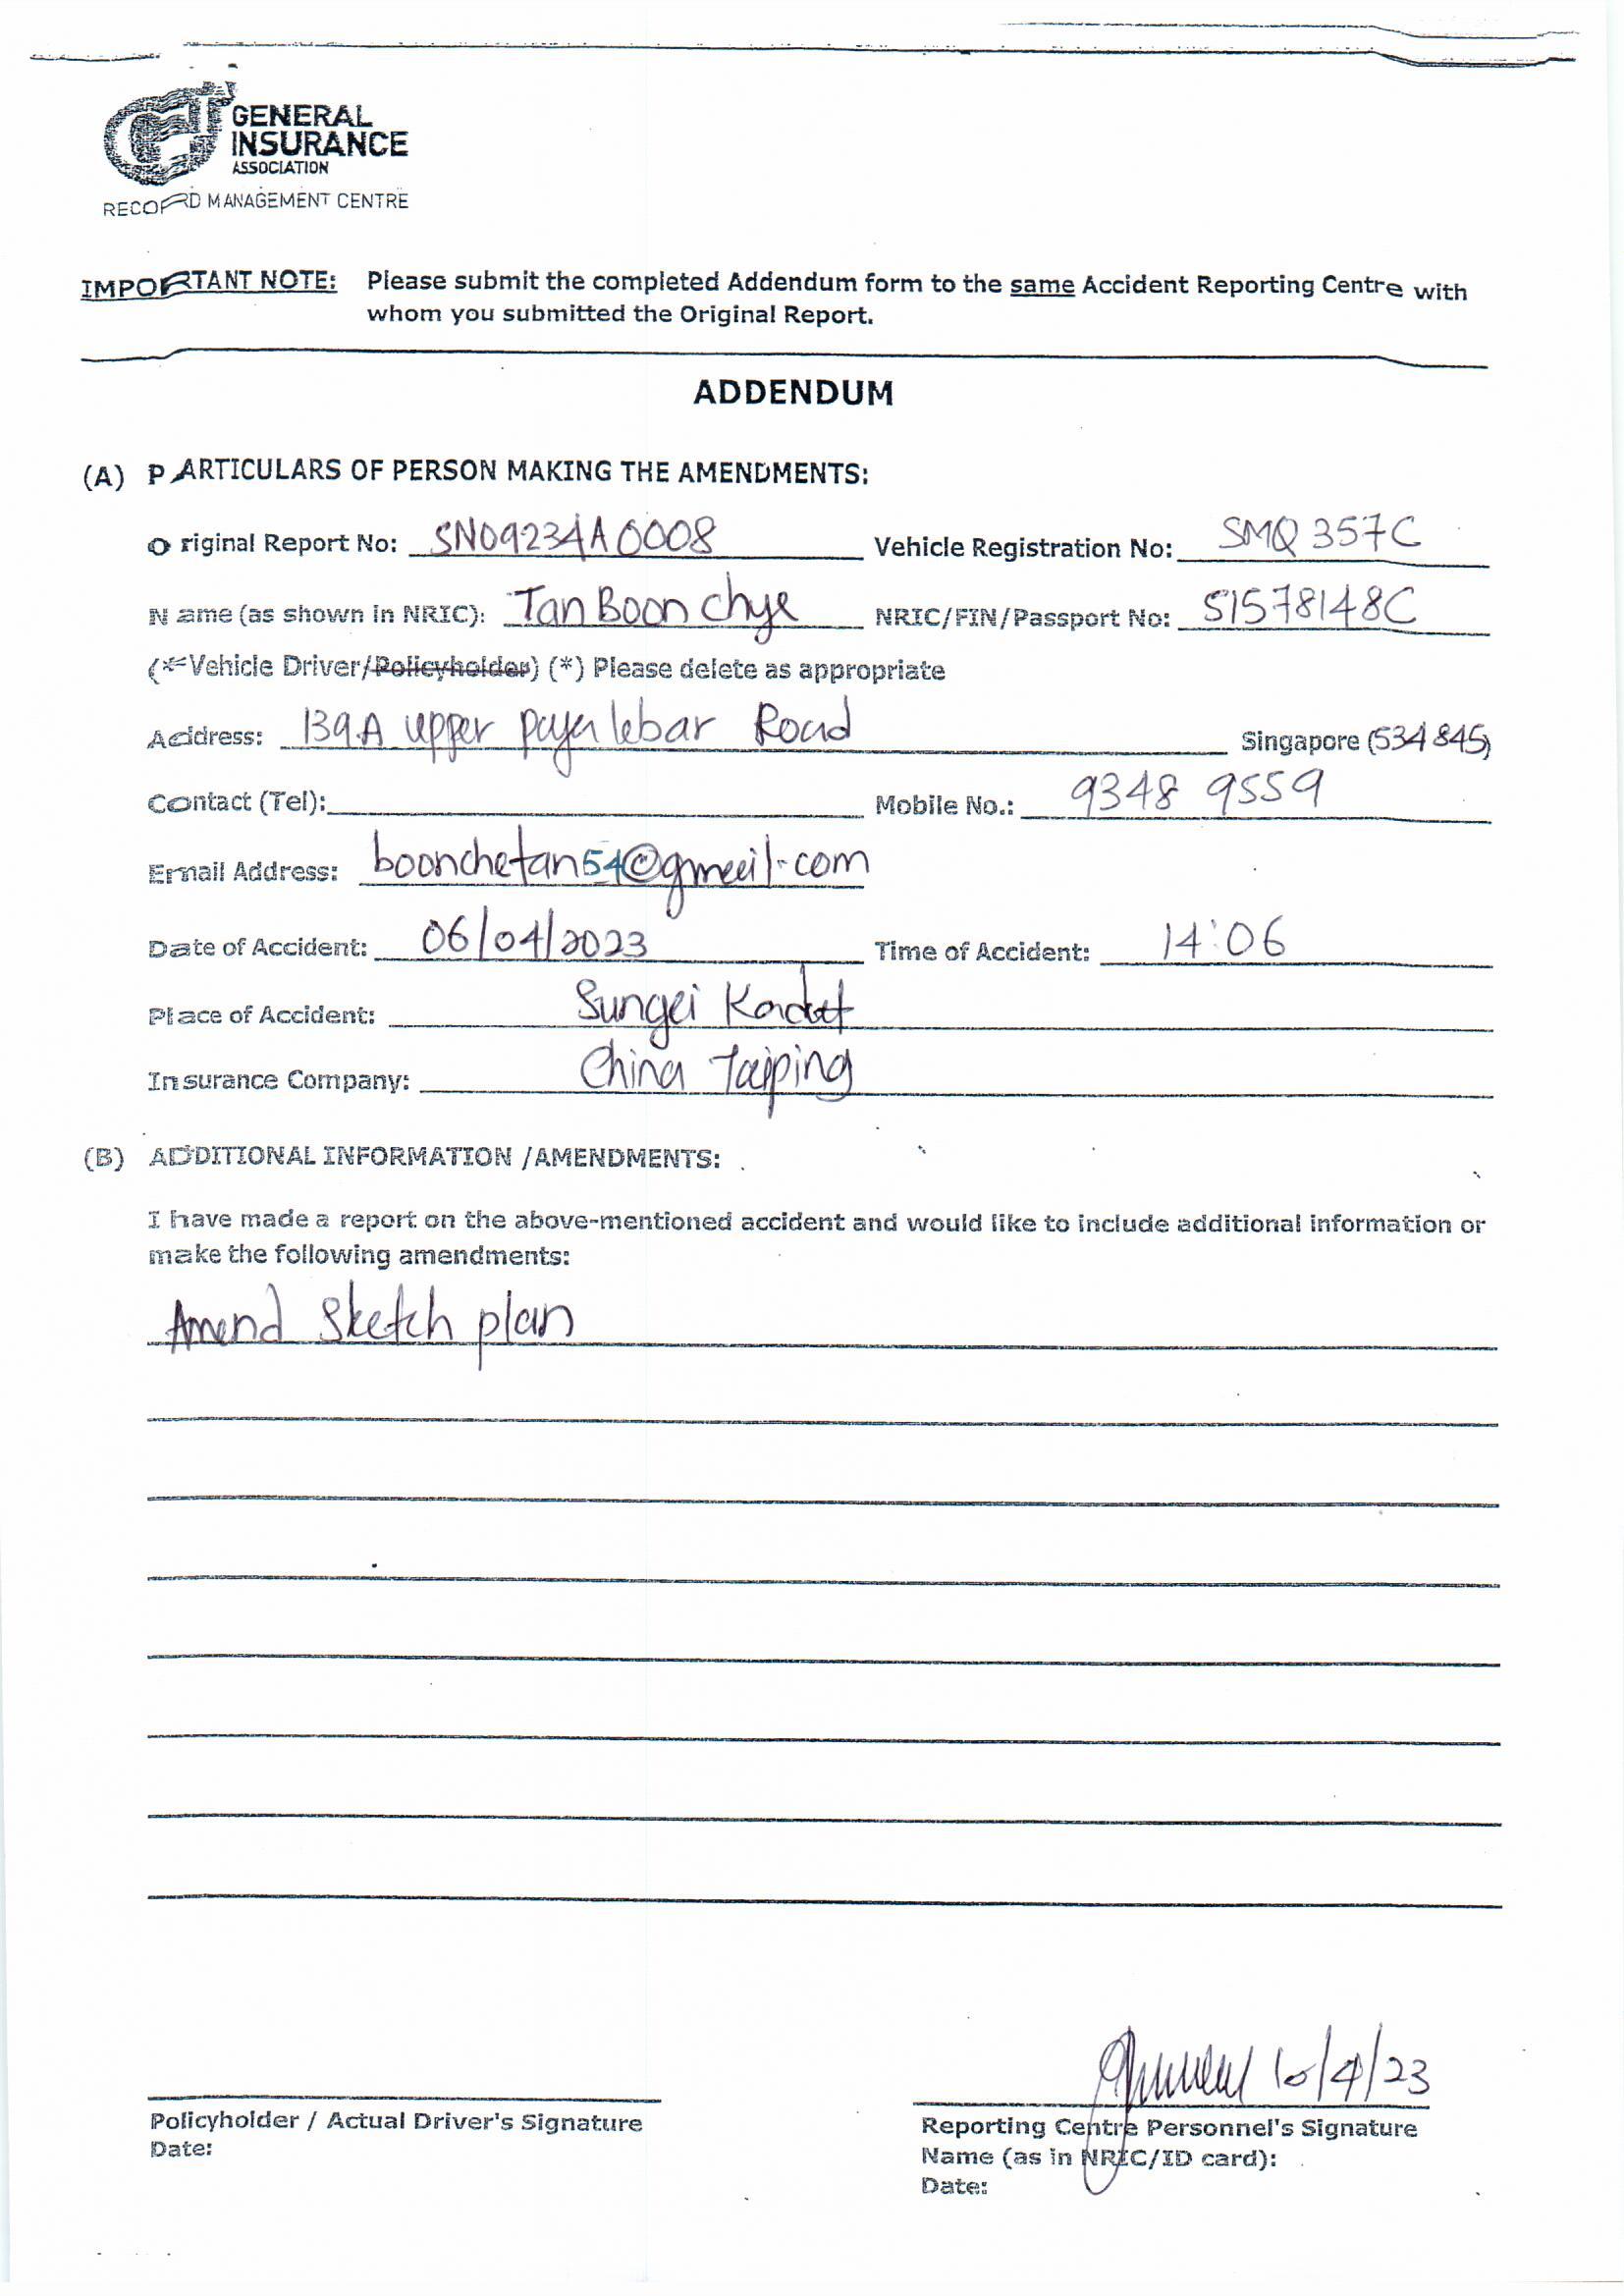 GENERAL
INSURANCE
ASSOCIATION
RECORD MANAGEMENT CENTRE
IMPORTANT NOTE: Please submit the completed Addendum form to the same Accident Reporting Centre with
whom you submitted the Original Report.
ADDENDUM
(A) PARTICULARS OF PERSON MAKING THE AMENDMENTS:
Original Report No: SN09234A0008 Vehicle Registration No: SMQ 357C
Name (as shown in NRIC): Tan Boon Chye NRIC/FIN/Passport No: S1578148C
(*Vehicle Driver/Policyholder) (*) Please delete as appropriate
Address: 139A upper paya lebar Road Singapore (534845)
Contact (Tel): Mobile No.: 9348 9559
Email Address: boonchetan54@gmail.com
Date of Accident: 06/04/2023 Time of Accident: 14:06
Place of Accident: Sungei Kadut
Insurance Company: China Taiping
(B) ADDITIONAL INFORMATION /AMENDMENTS:
I have made a report on the above-mentioned accident and would like to include additional information or
make the following amendments:
Amend Sketch plan
10/4/23
Policyholder / Actual Driver's Signature Reporting Centre Personnel's Signature
Date: Name (as in NRIC/ID card):
Date: